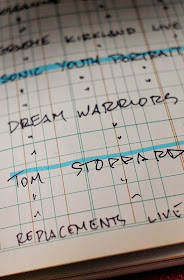 GRAEME KIRKLAND LIVE
SONIC YOUTH PORTRAIT
DREAM WARRIORS
TOM STOPPARD
REPLACEMENTS LIVE